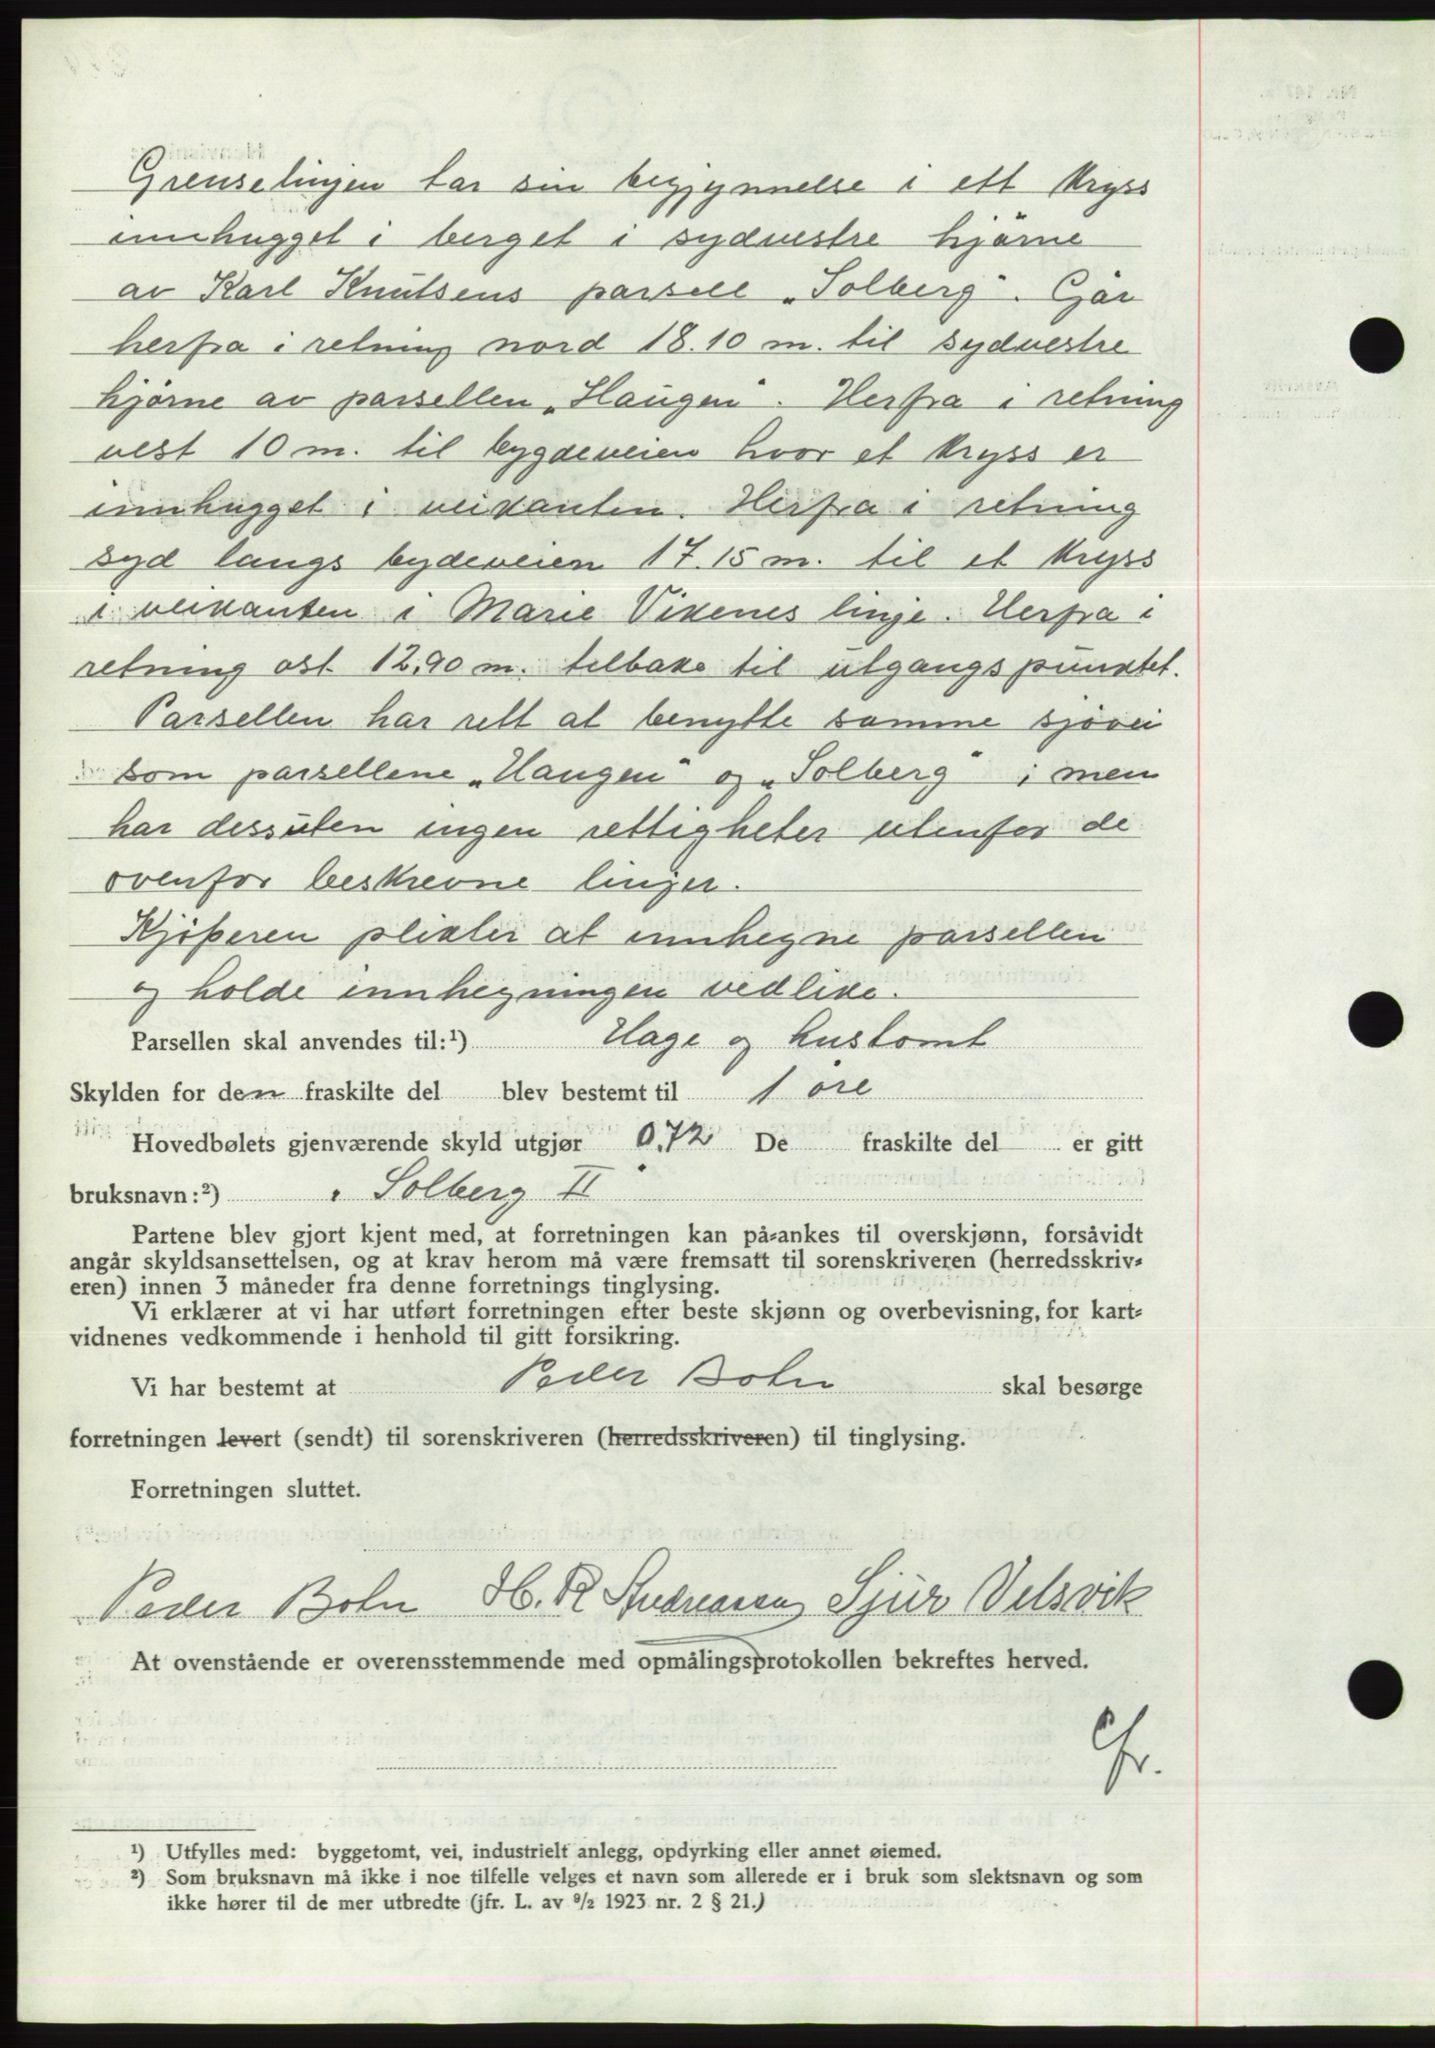 Grenselinjen tar sin begjynnelse i ett kryss
innhugget i berget i sydvestre hjørne
av Karl Knutsens parsell „Solberg“. Går
herfra i retning nord 18.10 m. til sydvestre
hjørne av parsellen „Haugen“. Herfra i retning
vest 10 m. til bygdeveien hvor et kryss er
innhugget i veikanten. Herfra i retning
syd langs bydeveien 17.15 m. til et kryss
i veikanten i Marie Vikenes linje. Herfra i
retning ost 12,90 m. tilbake til utgangspunktet.
Parsellen har rett at benytte samme sjøvei
som parsellene „Haugen“ og „Solberg“ ; men
har dessuten ingen rettigheter utenfor de
ovenfor beskrevne linjer.
Kjøperen plikter at innhegne parsellen
og holde innhegningen vedlike.
Parsellen skal anvendes til:¹) Hage og hustomt
Skylden for den fraskilte del blev bestemt til 1 øre
Hovedbølets gjenværende skyld utgjør 0,72 De fraskilte del er gitt
bruksnavn:²) „Solberg II“
Partene blev gjort kjent med, at forretningen kan på-ankes til overskjønn, forsåvidt
angår skyldsansettelsen, og at krav herom må være fremsatt til sorenskriveren (herredsskriv-
eren) innen 3 måneder fra denne forretnings tinglysing.
Vi erklærer at vi har utført forretningen efter beste skjønn og overbevisning, for kart-
vidnenes vedkommende i henhold til gitt forsikring.
Vi har bestemt at Peder Bohn skal besørge
forretningen levert (sendt) til sorenskriveren (herredsskriveren) til tinglysing.
Forretningen sluttet.
Peder Bohn H. R Andreassen Sjur Velsvik
At ovenstående er overensstemmende med opmålingsprotokollen bekreftes herved.
Cfr.
¹) Utfylles med: byggetomt, vei, industrielt anlegg, opdyrking eller annet øiemed.
²) Som bruksnavn må ikke i noe tilfelle velges et navn som allerede er i bruk som slektsnavn og som
ikke hører til de mer utbredte (jfr. L. av ⁹/₂ 1923 nr. 2 § 21.)